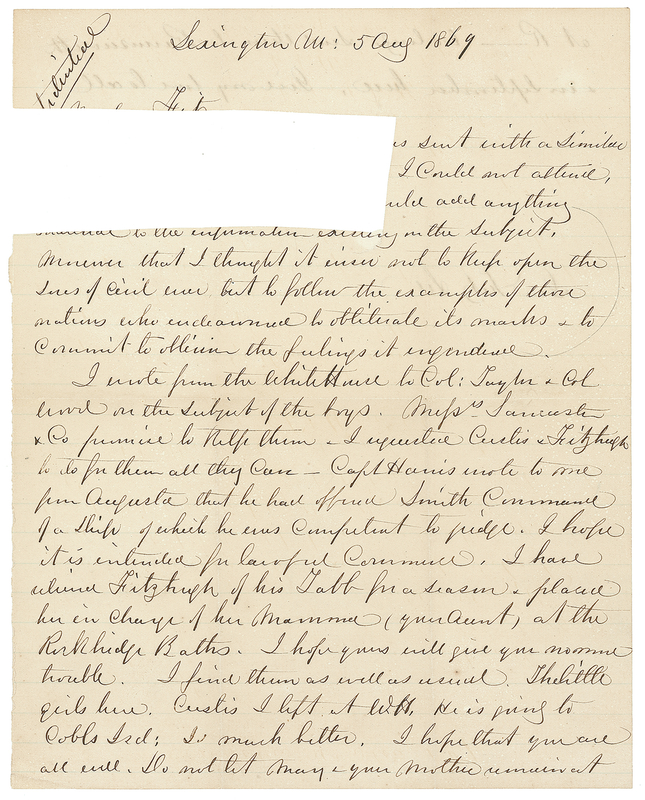 Lexington Va: 5 Aug 1869
Fitz
was sent with a similar
I Could not attend,
could add anything
material to the information existing on the subject,
moreover that I thought it wiser not to keep open the
sores of civil war, but to follow the examples of those
nations who endeavoured to obliterate its marks & to
Commit to oblivion the feelings it engendered.
I wrote from the White House to Col: Taylor & Col
wood on the subject of the boys. Messrs Lancaster
& Co promise to help them & I requested Custis & Fitzhugh
to do for them all they Can — Capt Harris wrote to me
from Augusta that he had offered Smith Command
of a Ship of which he was Competent to judge. I hope
it is intended for lawful Commerce. I have
relieved Fitzhugh of his Tabb for a season & placed
her in Charge of her Mamma (your Aunt) at the
Rockbridge Baths. I hope yours will give you no more
trouble. I find them as well as usual. The little
girls here. Custis I left at W.H. He is going to
Cobbs Isd: Is much better. I hope that you are
all well. Do not let Mary & your Mother remain at